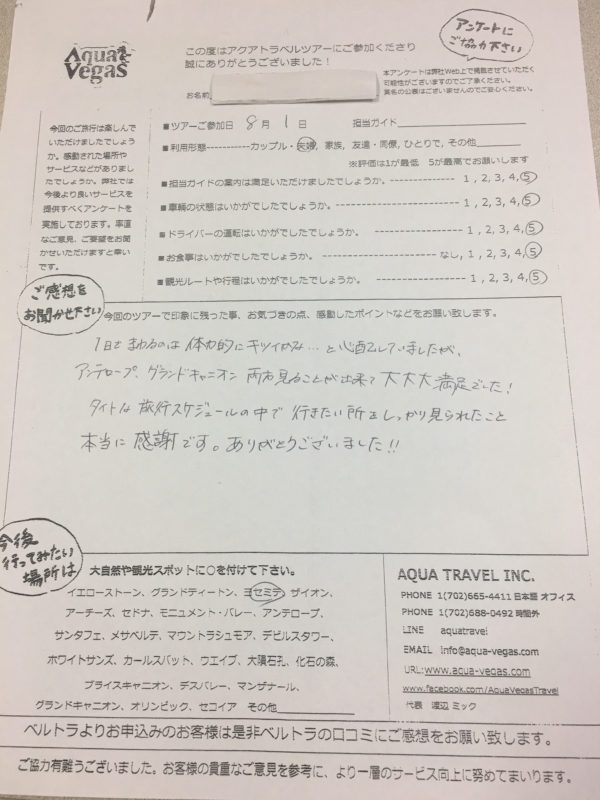 Aqua Vegas
この度はアクアトラベルツアーにご参加くださり
誠にありがとうございました！
アンケートに
ご協力下さい
本アンケートは弊社Web上で掲載させていただく
可能性がございますのでご了承ください。
実名の公表はございませんのでご安心ください。
お名前
■ツアーご参加日 8月 1日 担当ガイド
■利用形態-----------カップル・夫婦, 家族, 友達・同僚, ひとりで, その他
※評価は1が最低 5が最高でお願いします
■担当ガイドの案内は満足いただけましたでしょうか。---------------- 1, 2, 3, 4, 5
■車輌の状態はいかがでしたでしょうか。---------------- 1, 2, 3, 4, 5
■ドライバーの運転はいかがでしたでしょうか。---------------- 1, 2, 3, 4, 5
■お食事はいかがでしたでしょうか。---------------- なし, 1, 2, 3, 4, 5
■観光ルートや行程はいかがでしたでしょうか。---------------- 1, 2, 3, 4, 5
今回のご旅行は楽しんで
いただけましたでしょう
か。感動された場所や
サービスなどがありまし
たでしょうか。弊社では
今後より良いサービスを
提供すべくアンケートを
実施しております。率直
なご意見、ご要望をお聞
かせいただけますと幸い
です。
ご感想を
お聞かせ下さい
今回のツアーで印象に残った事、お気づきの点、感動したポイントなどをお願い致します。
1日でまわるのは 体力的にキツイかな…と心配していましたが、
アンテロープ、グランドキャニオン 両方見ることが出来て 大大大満足でした！
タイトな旅行スケジュールの中で 行きたい所をしっかり見られたこと
本当に感謝です。ありがとうございました!!
今後
行ってみたい
場所は
大自然や観光スポットに○を付けて下さい。
イエローストーン、グランドティートン、ヨセミテ、ザイオン、
アーチーズ、セドナ、モニュメント・バレー、アンテロープ、
サンタフェ、メサベルデ、マウントラシュモア、デビルスタワー、
ホワイトサンズ、カールスバット、ウエイブ、大隕石孔、化石の森、
ブライスキャニオン、デスバレー、マンザナール、
グランドキャニオン、オリンピック、セコイア その他
AQUA TRAVEL INC.
PHONE 1(702)665-4411 日本語 オフィス
PHONE 1(702)688-0492 時間外
LINE aquatravel
EMAIL info@aqua-vegas.com
URL:www.aqua-vegas.com
www.facebook.com/AquaVegasTravel
代表 渡辺 ミック
ベルトラよりお申込みのお客様は是非ベルトラの口コミにご感想をお願い致します。
ご協力有難うございました。お客様の貴重なご意見を参考に、より一層のサービス向上に努めてまいります。